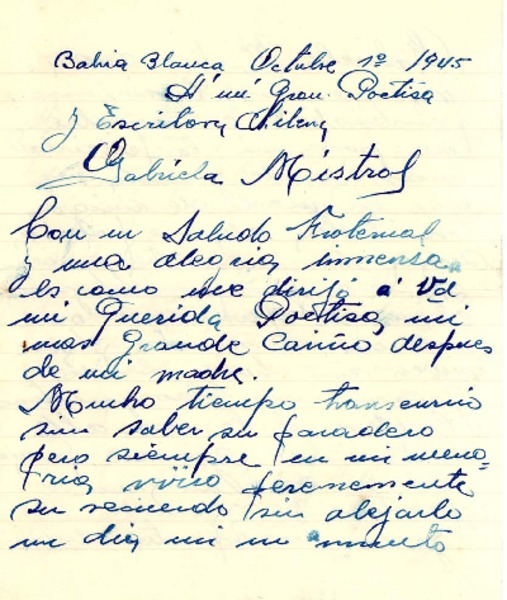 Bahia Blanca Octubre 1º 1945
A mi Gran Poetisa
y Escritora Chilena
Gabriela Mistral
Con un Saludo Fraternal
y una alegria inmensa
es como me dirijo a Vd
mi Querida Poetisa, mi
mas Grande Cariño despues
de mi madre.
Mucho tiempo transcurrio
sin saber su paradero
pero siempre en mi memo-
ria, vivio perenemente
su recuerdo sin alejarlo
un dia ni un minuto